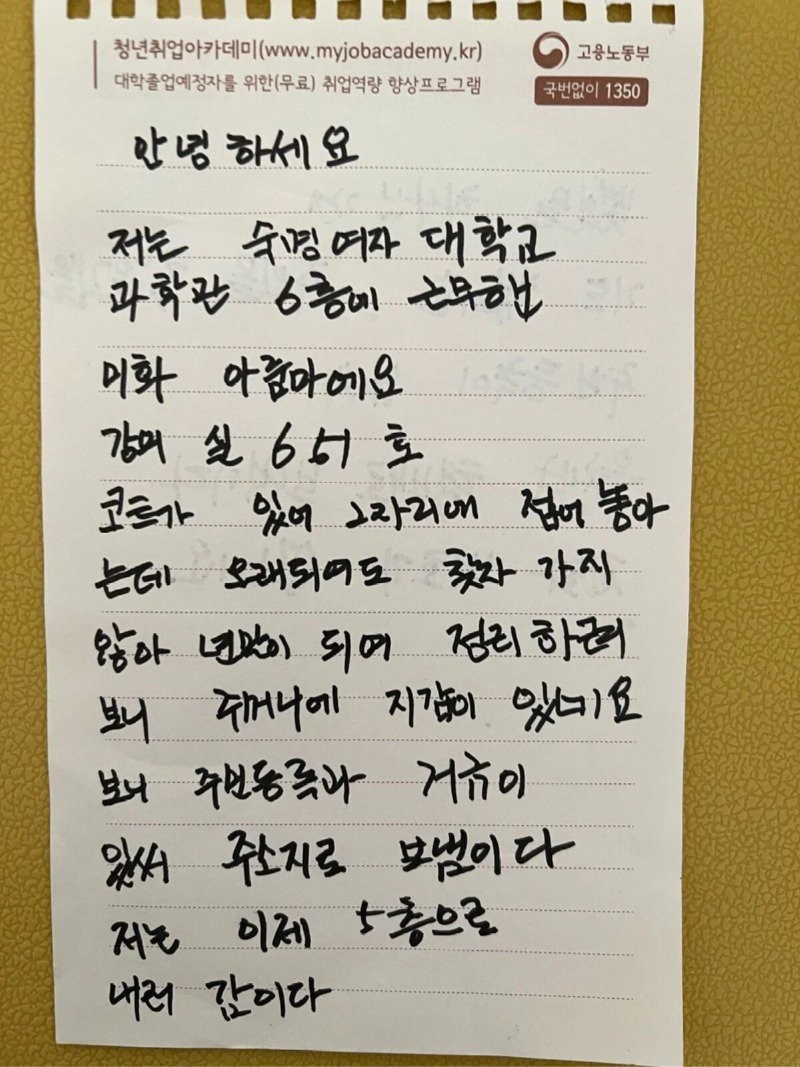 청년취업아카데미(www.myjobacademy.kr)
고용노동부
대학졸업예정자를 위한(무료) 취업역량 향상프로그램
국번없이 1350
안녕하세요
저는 숙명여자 대학교
과학관 6층에 근무합
미화 아줌마에요
강의 실 651 호
코트가 있어 그자리에 접어 놓아
는데 오래되여도 찾자 가지
않아 년말이 되여 정리하려
보니 주머니에 지갑이 있네요
보니 주민등록과 거류이
있써 주소지로 보냄이다
저는 이제 5층으로
내려 감이다